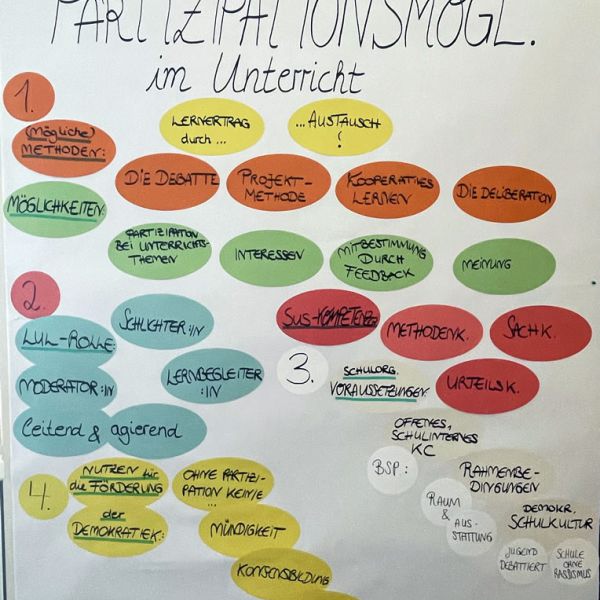 PARTIZIPATIONSMÖGL.
im Unterricht
1.
(Mögliche)
METHODEN:
LERNERTRAG
durch ...
... AUSTAUSCH
!
DIE DEBATTE
PROJEKT-
METHODE
KOOPERATIVES
LERNEN
DIE DELIBERATION
MÖGLICHKEITEN:
PARTIZIPATION
BEI UNTERRICHTS-
THEMEN
INTERESSEN
MITBESTIMMUNG
DURCH
FEEDBACK
MEINUNG
2.
LUL-ROLLE:
SCHLICHTER:IN
MODERATOR:IN
LERNBEGLEITER
:IN
leitend & agierend
SUS-KOMPETENZ:
METHODENK.
SACHK.
URTEILSK.
3.
SCHULORG.
VORAUSSETZUNGEN:
OFFENES,
SCHULINTERNES
KC
BSP.:
RAHMENBE-
DINGUNGEN
RAUM
&
AUS-
STATTUNG
DEMOKR.
SCHULKULTUR
JUGEND
DEBATTIERT
SCHULE
OHNE
RASSISMUS
4.
NUTZEN für
die FÖRDERUNG
der
DEMOKRATIEK.:
OHNE PARTIZI-
PATION KEINE
...
MÜNDIGKEIT
KONSENSBILDUNG